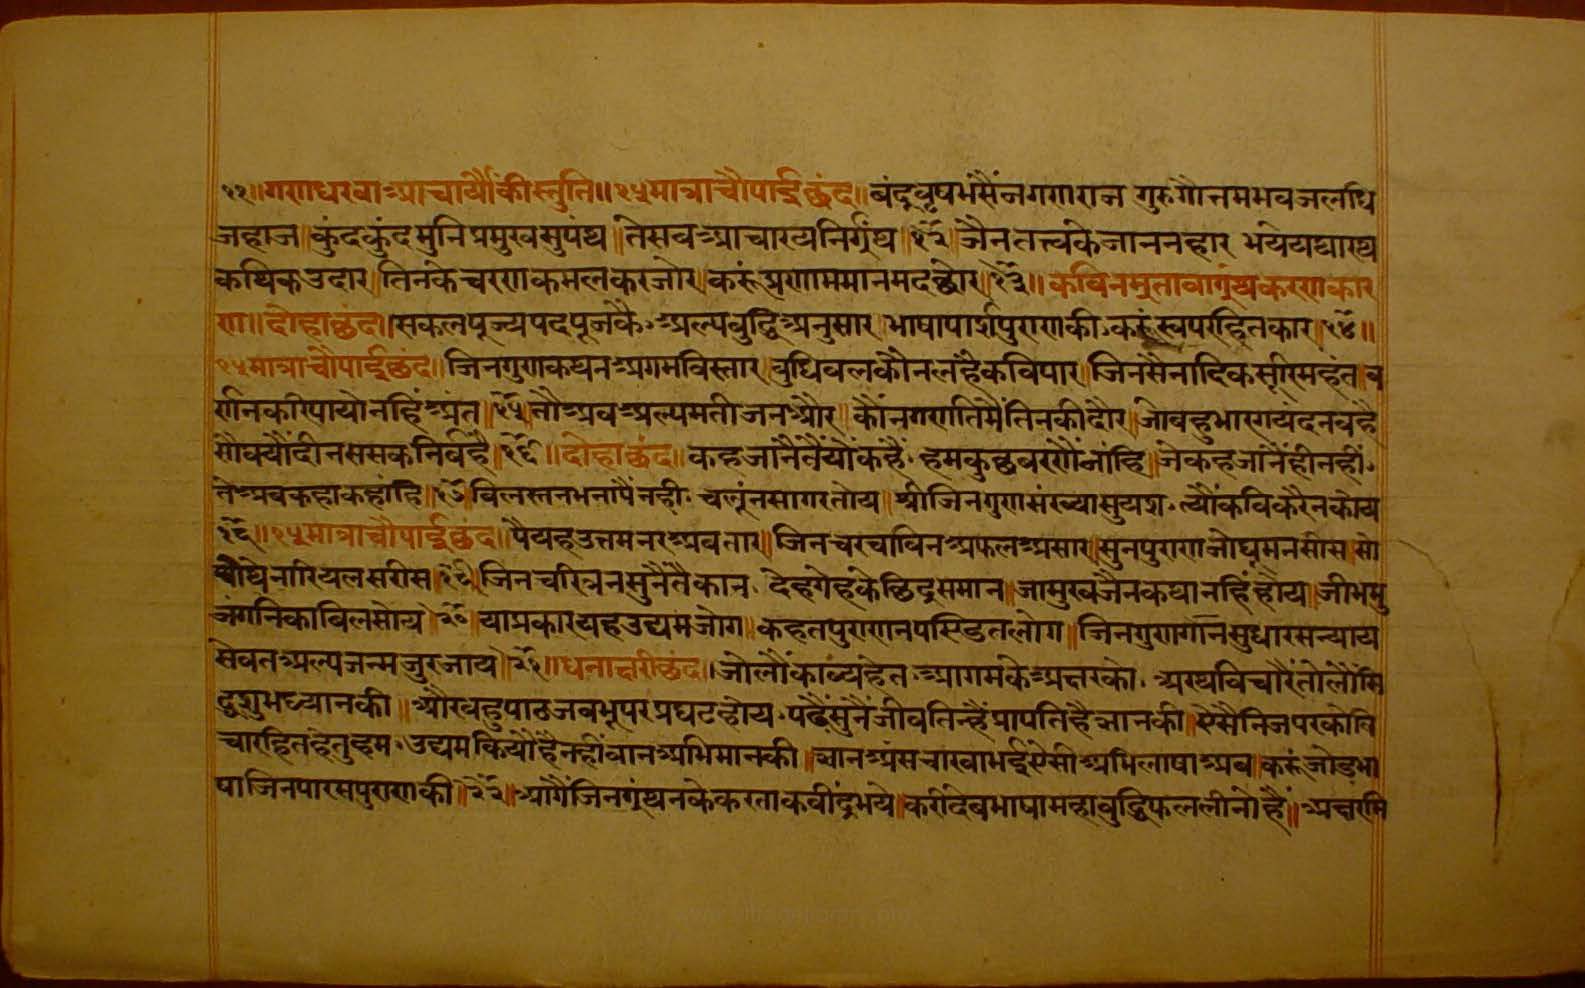 ११॥ गणधर वा आचार्यौंकी स्तुति॥ १५ मात्रा चौपाई छंद॥ बंदू वृषभसैंन गणराज गुरु गौत्तम भवजलधि
जहाज॥ कुंदकुंद मुनि प्रमुख सुपंथ॥ ते सब आचारय निर्ग्रंथ॥१२॥ जैनतत्त्वके जाननहार भये यथारथ
कथिक उदार॥ तिनके चरणकमल करजोर॥ करूं प्रणाम मानमद छोर॥१३॥ कविनम्रता वा ग्रंथकरण कार
ण॥ दोहा छंद॥ सकल पूज्यपद पूजकै. अल्पबुद्धि अनुसार॥ भाषा पार्श्वपुराणकी. करूं स्वपरहितकार॥१४॥
१५ मात्रा चौपाई छंद॥ जिनगुणकथन अगमविस्तार॥ बुधिबल कौन लहै कवि पार॥ जिनसैनादिक सूरि महंत॥ व
र्णन करि पायो नहिं अंत॥१५॥ तौ अब अल्पमती जन और॥ कौंन गणतिमैं तिनकी दौर॥ जो बहुभार गयंद न वहै
सो क्यौं दीन ससक निर्वहै॥१६॥ दोहा छंद॥ कह जांनै तैं यों कहैं. हम कुछ वरणों नांहि॥ जे कह जांनैं ही नहीं.
ते अब कहा कहांहि॥१७॥ विलस्त नभ नापैं नही. चलूं न सागर तोय॥ श्रीजिनगुण संख्या सुयश. त्यौं कवि करै न कोय
१८॥ १५ मात्रा चौपाई छंद॥ पै यह उत्तम नर अवतार॥ जिनचरचा विन अफल असार॥ सुन पुराण जो घूमै न सीस सो
थोथे नारियल सरीस॥१९॥ जिनचरित्र न सुनै तै कान. देहगेहके छिद्र समान॥ जा मुख जैनकथा नहिं होय॥ जीभ भु
जंगनिका विल सोय॥२०॥ या प्रकार यह उद्यम जोग॥ कहत पुराण न पण्डित लोग॥ जिनगुणगान सुधारस न्याय
सेवत अल्प जन्म जुर जाय॥२१॥ घनाक्षरी छंद॥ जो लौं काव्य हेत. आगमके अक्षरको. अरथ विचारैं तो लौं सि
द्धि शुभध्यानकी॥ और वहु पाठ जब भूपर प्रघट होय. पढैं सुनै जीव तिन्हैं प्रापति है ज्ञानकी॥ ऐसै निज परको वि
चार हित हेतु हम. उद्यम कियो है नहीं वान अभिमानकी॥ ज्ञान अंस चाखा भई ऐसी अभिलाषा अब करूं जोड भा
षा जिन पारसपुराणकी॥२२॥ आगैं जिनग्रंथनके करता कवींद्र भये॥ करी देवभाषा महा बुद्धिफल लीनो है॥ अक्षर मि